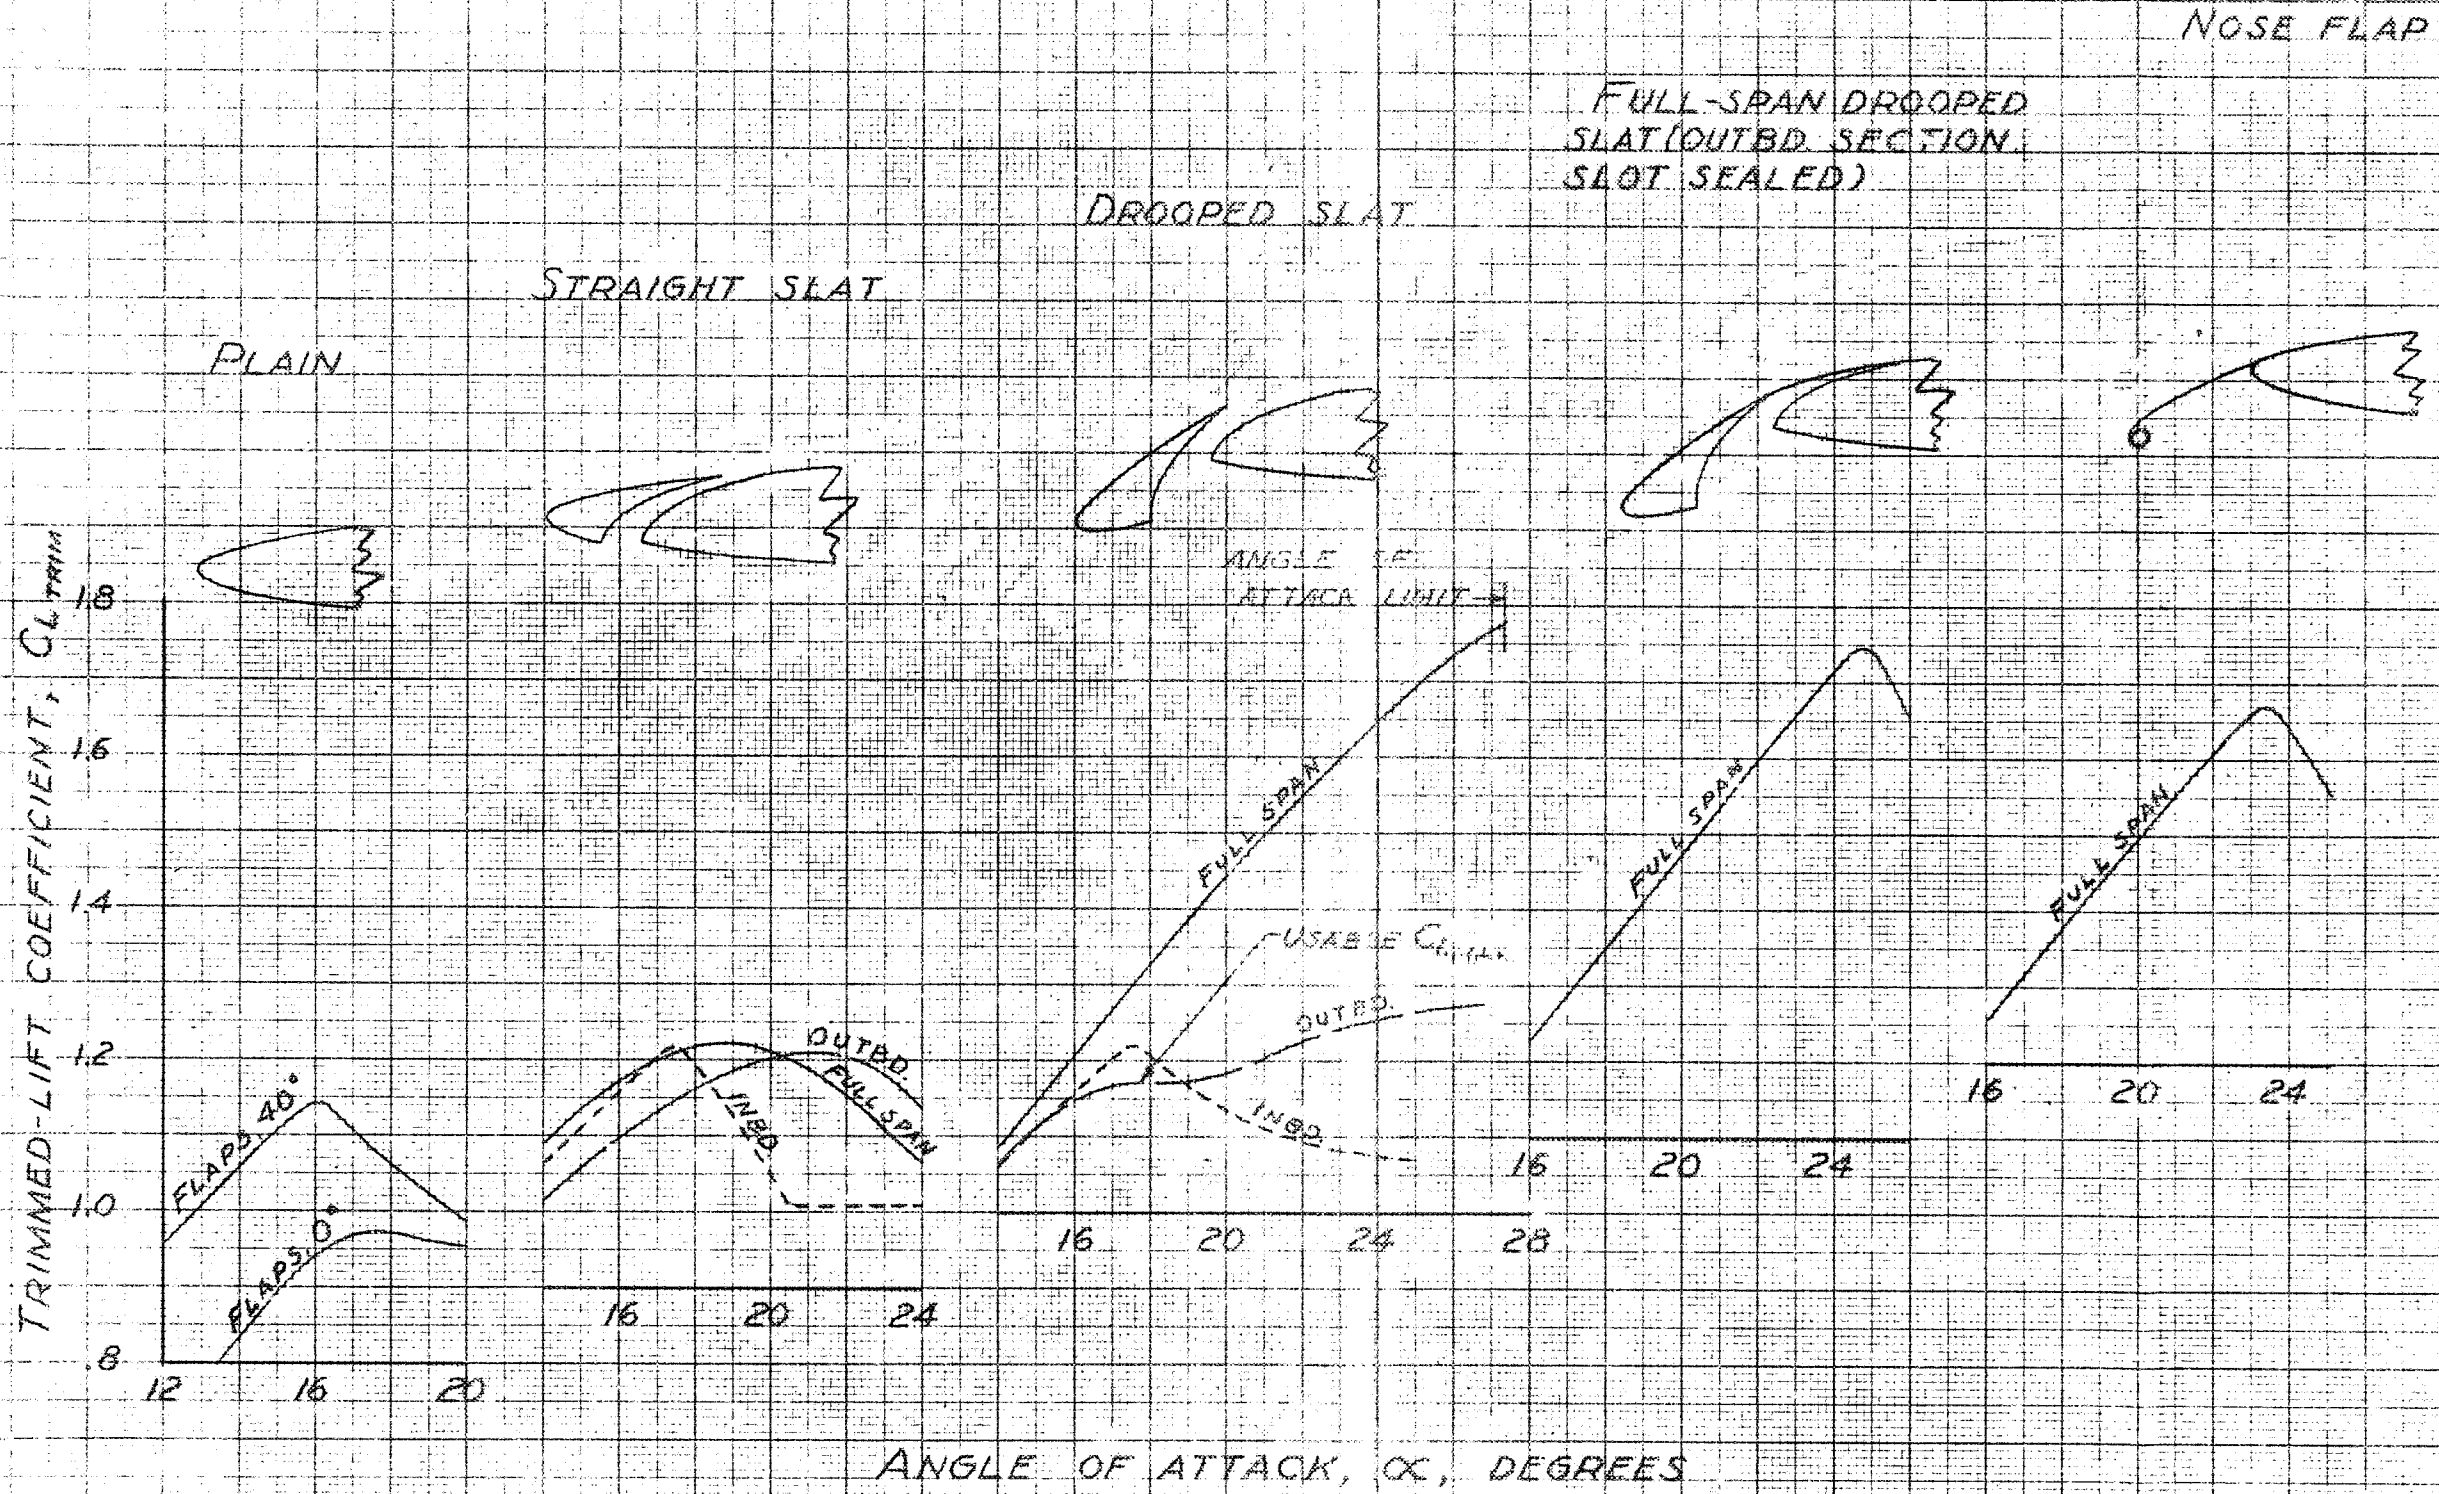 NOSE FLAP
FULL-SPAN DROOPED
SLAT (OUTBD. SECTION
SLOT SEALED)
DROOPED SLAT
STRAIGHT SLAT
PLAIN
ANGLE OF
ATTACK LIMIT
TRIMMED-LIFT COEFFICIENT, CL TRIM
1.8
1.6
1.4
1.2
1.0
.8
FLAPS, 40°
FLAPS, 0°
12 16 20
OUTBD.
FULL SPAN
INBD.
16 20 24
FULL SPAN
USABLE
OUTBD.
INBD.
16 20 24 28
FULL SPAN
16 20 24
FULL SPAN
16 20 24
ANGLE OF ATTACK, ∝, DEGREES